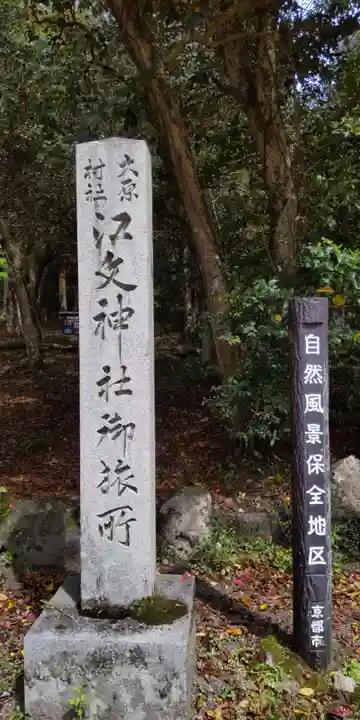 大原
村社
江文神社御旅所
自然風景保全地区
京都市